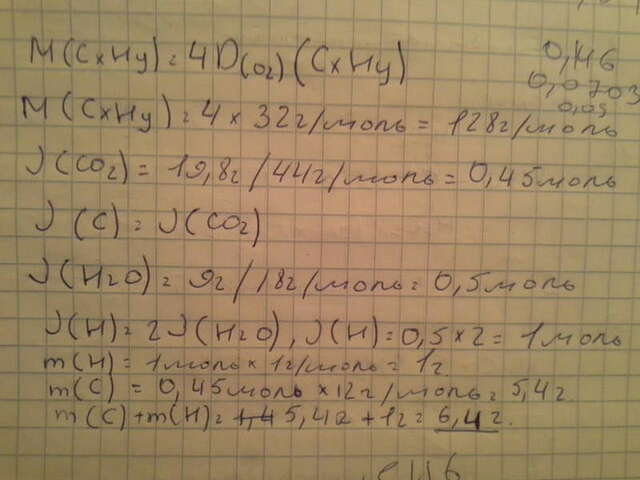 M(CxHy) = 4D(O2)(CxHy)
0,146
0,0703
0,05
M(CxHy) = 4 × 32г/моль = 128г/моль
ν(CO2) = 19,8г/44г/моль = 0,45моль
ν(C) = ν(CO2)
ν(H2O) = 9г/18г/моль = 0,5моль
ν(H) = 2ν(H2O), ν(H) = 0,5×2 = 1моль
m(H) = 1моль × 1г/моль = 1г.
m(C) = 0,45моль × 12г/моль = 5,4г.
m(C)+m(H) = 5,4г + 1г = 6,4г.